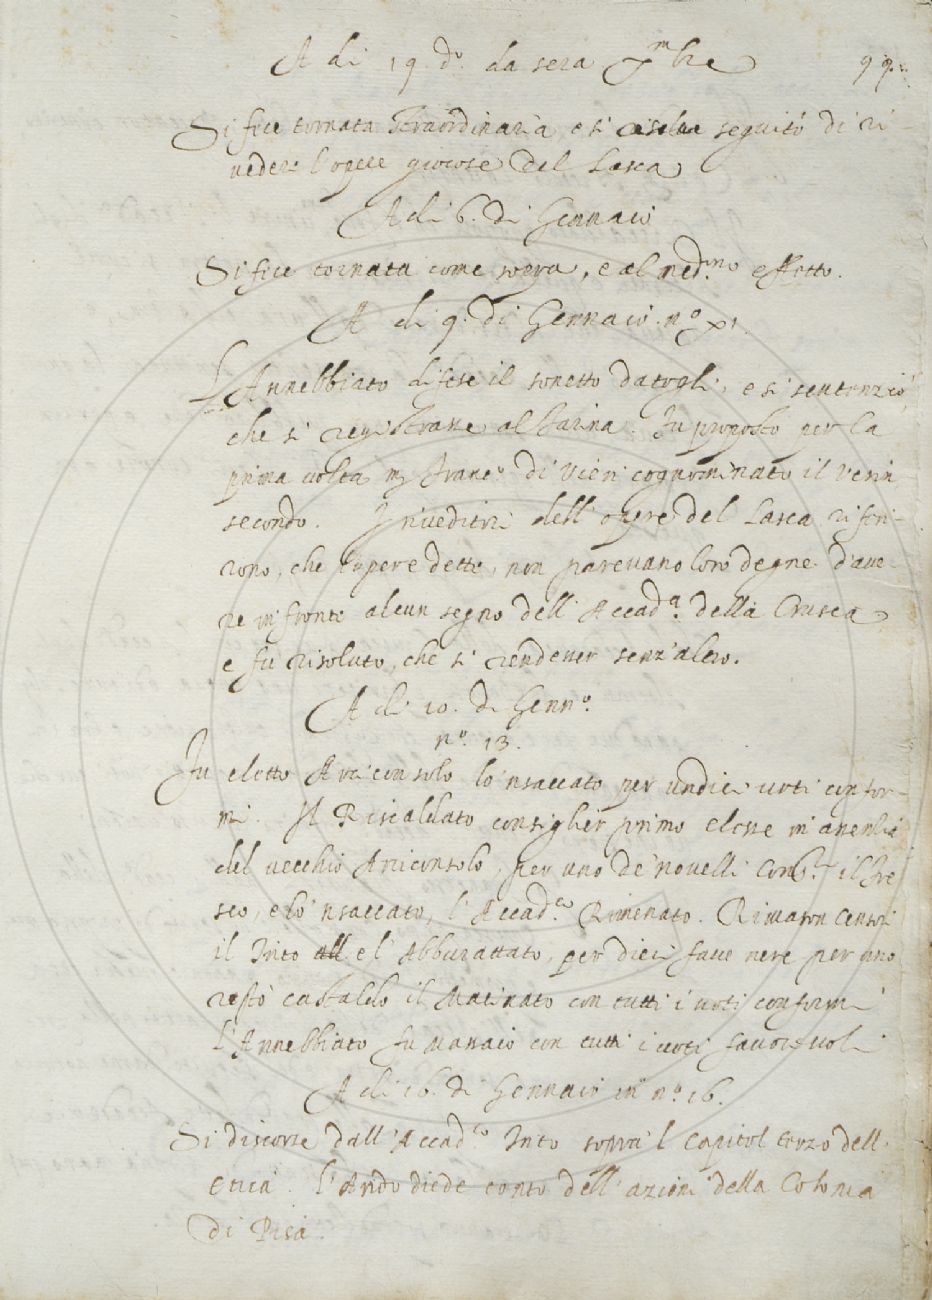 A di 19 d.º da sera Xmbre 99.
Si fece tornata straordinaria, e si seguitò di ri-
vedere l'opere giocose del Lasca
A di 6. di Gennaio
Si fece tornata come sopra, e al med.mo effetto.
A di 9. di Gennaio. nº XI.
L'Annebbiato difese il sonetto datogli, e si sentenziò
che si registrasse al Farina. Fu proposto per la
prima volta m. Franc.º di Vieri cognominato il Verin
secondo. I riveditori dell'opere del Lasca riferi-
rono, che l'opere dette, non parevano loro degne d'ave-
re in fronte alcun segno dell'Accad.ª della Crusca
e fu risoluto, che si rendesser senz'altro.
A di 10. di Genn.º
nº. 13.
Fu eletto Arciconsolo lo 'nsaccato per undici voti confor-
mi. Il Riscaldato consiglier primo elesse in assenzia
del vecchio Arciconsolo, per uno de' novelli Cons.ri il fre
sco, e lo 'nsaccato, l'Accad.co Rimenato. Rimason Censori
il Trito e l'Abburattato, per dieci fave nere per uno
restò castaldo il Macinato con tutti i voti conformi
l'Annebbiato fu Massaio con tutti i voti favorevoli
A di 16. di Gennaio in nº. 16.
Si discorse dall'Accad.co Trito sopra 'l capitol terzo dell'
etica. l'Arido diede conto dell'azioni della Colonia
di Pisa.